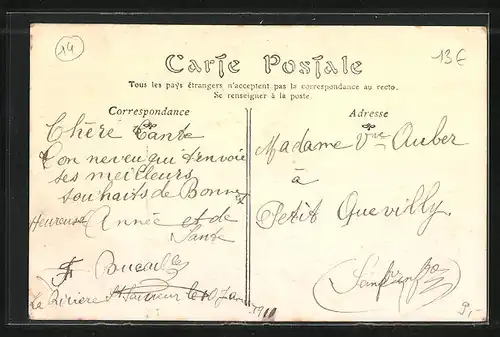 14
13€
Carte Postale
Tous les pays étrangers n'acceptent pas la correspondance au recto.
Se renseigner à la poste.
Correspondance
Chère Tante
Ton neveu qui t'envoie
ses meilleurs
souhaits de Bonne &
Heureuse Année et de
Sante
La Rivière St Sauveur le
Adresse
Madame Vve Auber
à
Petit Quevilly
9,-